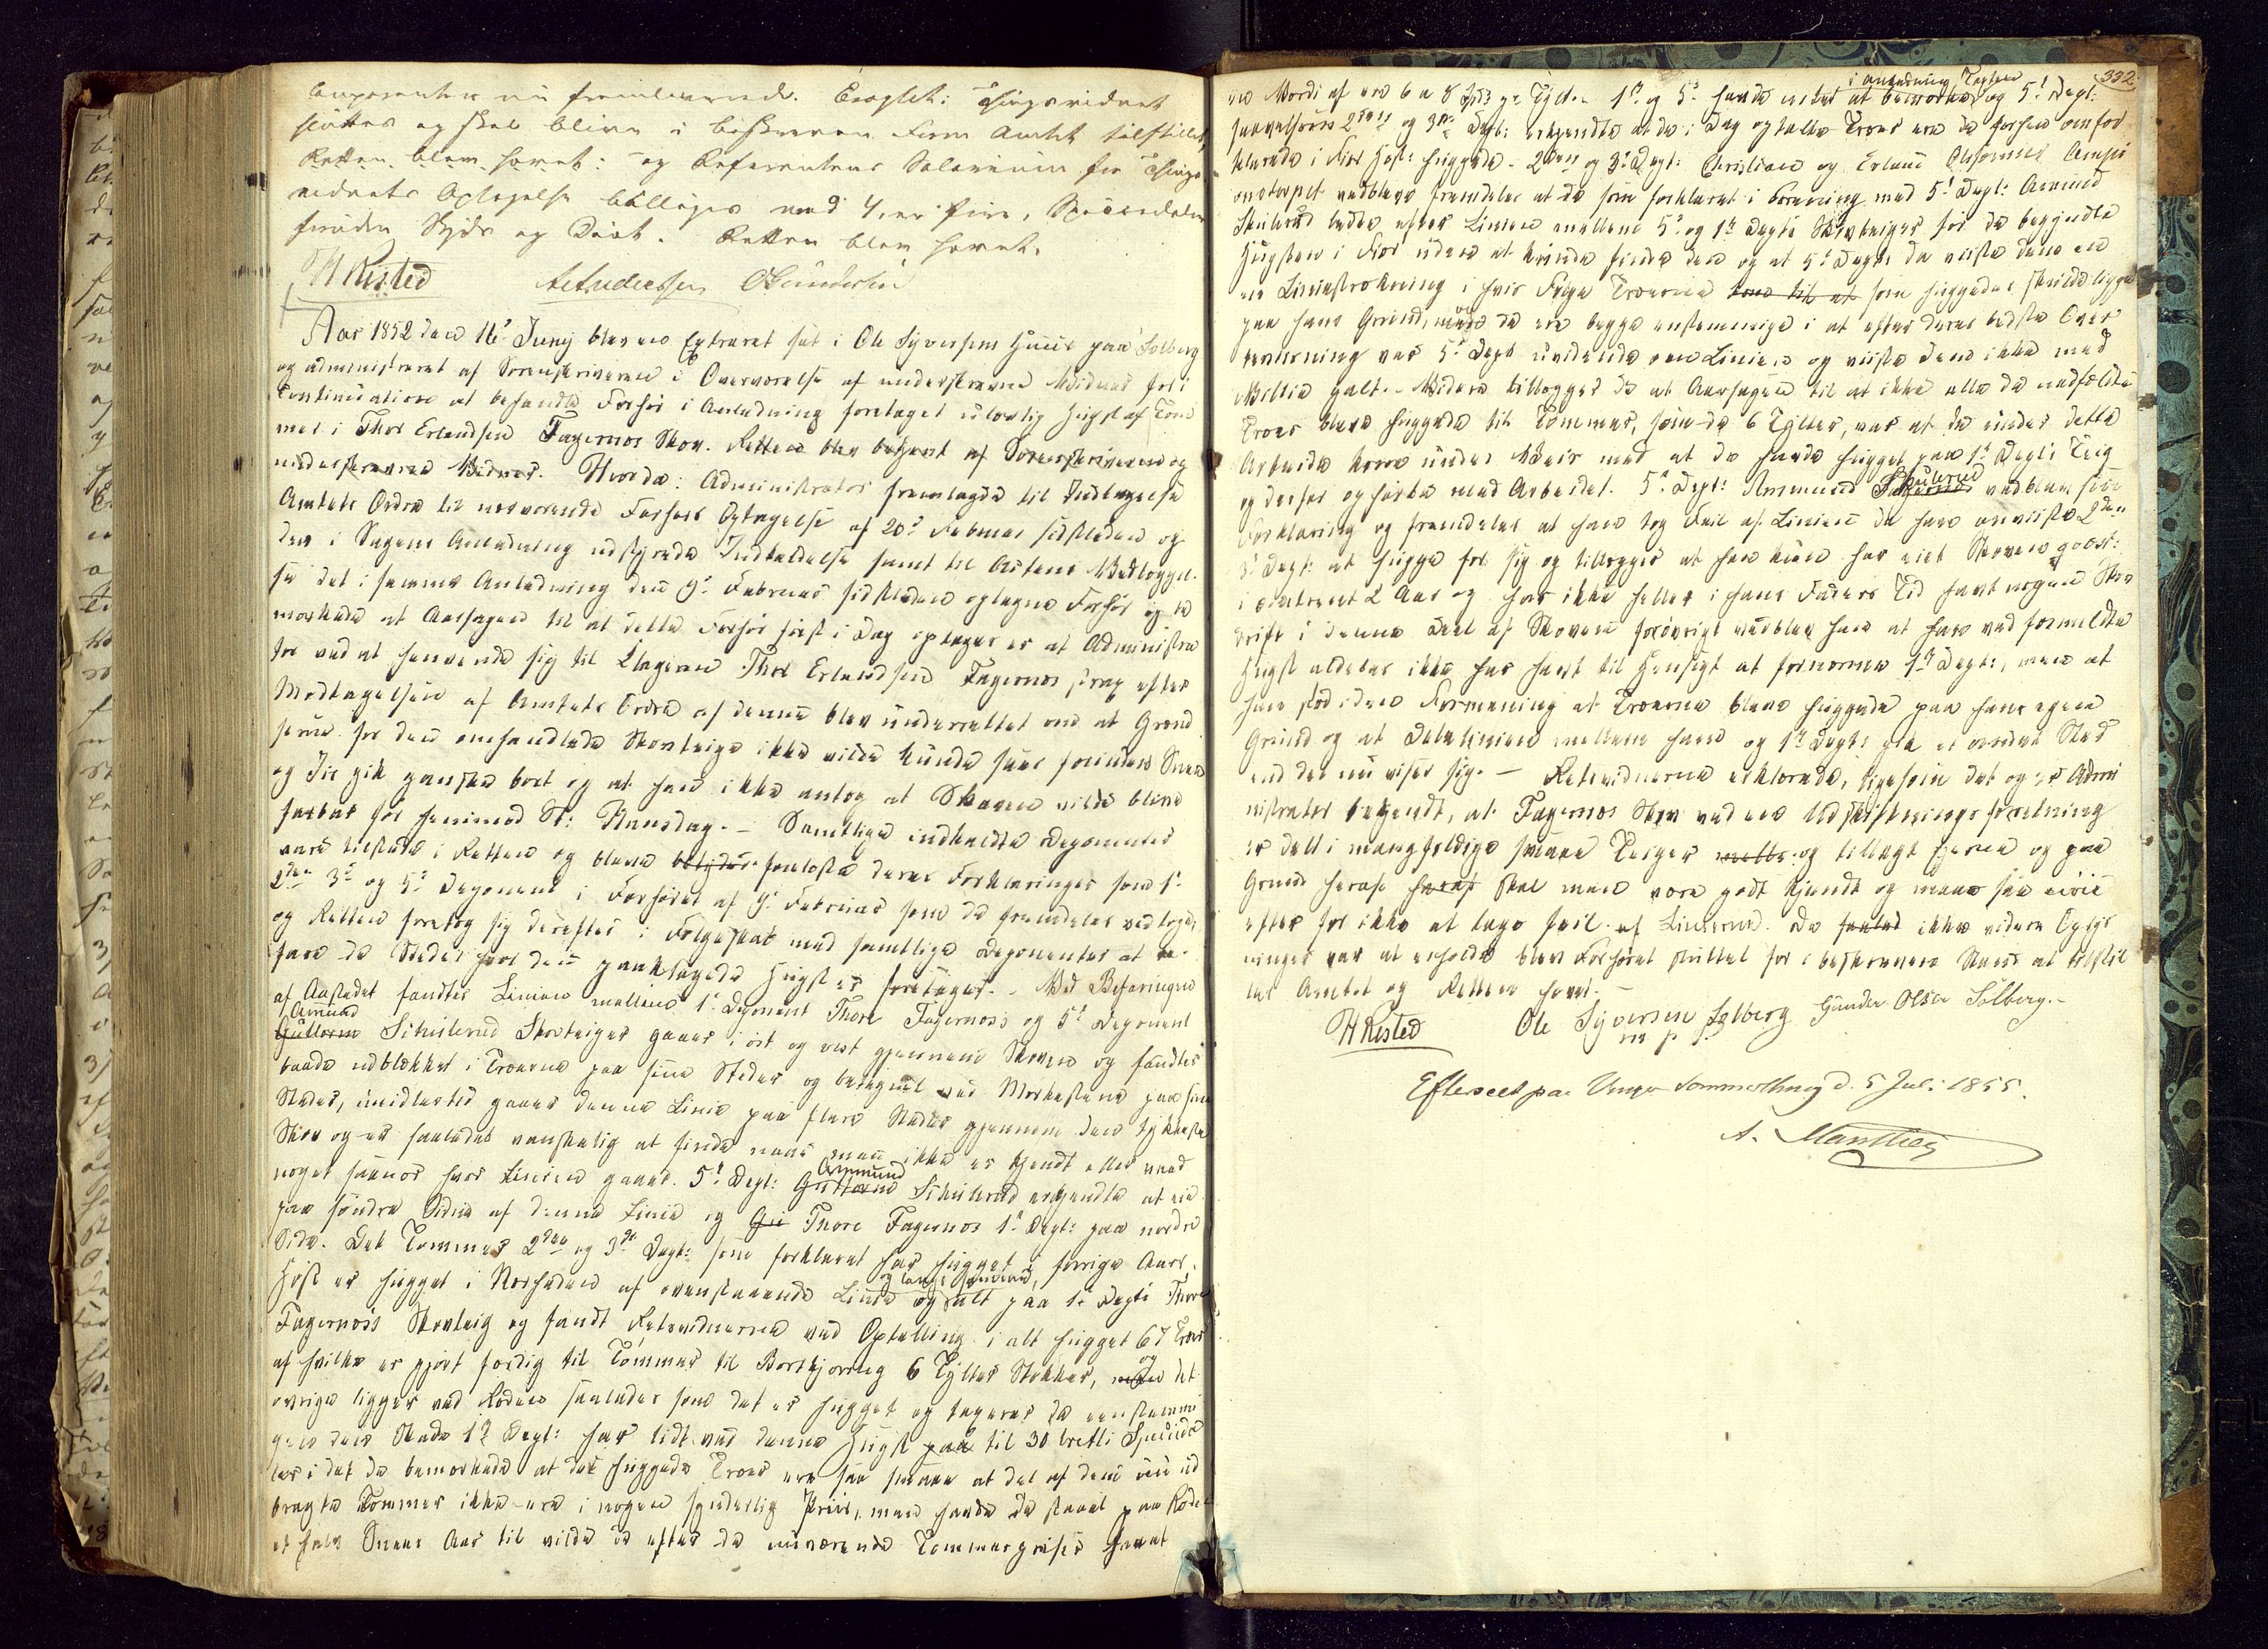 Comparenten nu fremleverede. Eragtet: Thingsvidnet
sluttes og skal blive i beskreven Form Amtet tilstillet,
Retten blev hævet: og Referentens Salarium for Things
vidnets Optagelse billiges med 4, er fire, Speciedaler
foruden Skyds og Diæt. Retten blev hævet.
H Risted A Andersen O Gundersen
Aar 1852 den 16de Juny blev en Extraret sat i Ole Syversens Huus paa Solberg
og administreret af Sorenskriveren i Overværelse af underskrevne Vidner for i
Continuation at behandle Forhør i Anledning foretaget ulovlig Hugst af Tøm
mer i Thor Erlandsen Fagernæs Skov. Retten blev betjent af Sorenskriveren og
underskrevne Vidner. Hvorda: Administrator fremlagde til Indtagelse
Amtets Ordre til nærværende Forhørs Optagelse af 20de Februar sidstleden og
den i Sagens Anledning udfærdigede Indkaldelse samt til Actens Vedlæggel-
se det i samme Anledning den 9de Februar sidstleden optagne Forhør og be
mærkede at Aarsagen til at dette Forhør først i Dag optages er at Administra
tor ved at henvende sig til Klageren Thor Erlandsen Fagernæs strax efter
Modtagelsen af Amtets Ordre af denne blev underrettet om at Grænd
serne for den omhandlede Skovteige ikke vilde kunde sees forinden Snee
og Iis gik ganske bort og at han ikke antog at Skoven vilde blive
farbar før henimod St: Hansdag. – Samtlige indkaldte Deponenter
vare tilstede i Retten og bleve forelæste deres Forklaringer som 1ste
2den 3de og 5te Deponent i Forhøret af 9de Februar som de fremdeles vedtoge,
og Retten foretog sig derefter i Følgeskab med samtlige Deponenter at be-
fare de Steder hvor den paaklagede Hugst er foretaget. – Ved Befaringen
af Aastedet fandtes Linien mellem 1ste Deponent Thore Fagernæss og 5te Deponent
Gullorm Amund Skulerud Skovteiger gaaer i øst og vest gjennem Skoven og fandtes
baade udblækket i Træerne paa sine Steder og betegnet ved Merkestene paa sine
Steder, imidlertid gaaer denne Linie paa flere Steder gjennem den tykkeste
Skov og er saaledes vanskelig at finde naar man ikke er kjendt eller veed
noget hvor Linien gaaer. 5te Dept: Amund Skulerud erkjendte at eie
paa søndre Siden af denne Linie og Thore Fagernæs 1ste Dept: paa nordre
Side. Det Tømmer 2den og 3die Dept: som forklaret har hugget i forrige Aars
Høst er hugget i Nærheden af ovenstaaende Linie og alt paa 1ste Depts Thore
Fagernæss Skovteig og fandt Retsvidnerne ved Optælling i alt hugget 67 Træer
af hvilke er gjort færdig til Tømmer til Bortkjøring 6 Tylter Stokker, og det
øvrige ligger ved Roden saaledes som det er hugget og taxerer de eenstemmi
gen den Skade 1ste Dept: har lidt ved denne Hugst til 30 tretti Specieda
ler i det de bemærkede at det huggede Træer ere saa smaae at det af dem nu ud
bragte Tømmer ikke ere i nogen synderlig Priis, men havde de staaet paa Roden
et halv Snees Aar til vilde de efter de nuværende Tømmerpriser havet
332.
en Værdi af en 6 a 8 Spd pr Tylt. 1ste og 5te havde intet i Anledning Taxten at bemærke, og 5te Dept:
saavelsom 2den og 3die Dept: erkjendte at de i Dag optalte Træer ere de forhen omfor
klarede i Fior Høst huggede. 2den og 3die Dept: Christian og Erland
vedbleve fremdeles at de som forklaret i Forening med 5te Dept: Amund
Skulerud ledte efter Linien mellem 5te og 1ste Depts Skovteiger før de begyndte
Hugsten i Fior uden at kunde finde den og at 5te Dept: da viiste dem en
en Liniestrækning i hvis Følge Træerne som huggedes skulde ligge
paa hans Grund, da ere begge enstemmige i at efter deres bedste Over
beviisning var 5te Dept uvidende om Linien og viiste dem ikke med
Villie galt. – Videre tillægges de at Aarsagen til at ikke alle de nedfældte
Træer bleve huggede til Tømmer, som de 6 Tylter, var at de under dette
Arbeide kom under Veir med at de havde hugget paa 1ste Depts Teig
og derfor ophørte med Arbeidet. 5te Dept: Amund Skulerud vedblev sin
Forklaring og fremdeles at han tog Feil af Linien da han anviiste 2den
3die Dept: at hugge for sig og tillægger at han kun har eiet Skoven
i omtrent 2 Aar og har ikke heller i hans Faders Tid havt nogen Skov
drift i denne Deel af Skoven forøvrigt vedblev han at han ved formeldte
Hugst aldeles ikke har havt til Hensigt at fornærme 1ste Dept:, men at
han stod i den Formening at Træerne bleve huggede paa hans egen
Grund og at Delelinien mellem ham og 1ste Dept: gik et andet Sted
end den nu viser sig. – Retsvidnerne erklærede, ligesom det og er Admi
nistrator bekjendt, at Fagernæs Skov ved en Udskiftningsforretning
er delt i mangfoldige smaae Teiger og tillagt Eierne og paa
Grund heraf skal man være godt kjendt og maae see nøie
efter for ikke at tage feil af Linierne. Da ikke videre Oplys
ninger var at erholde blev Forhøret sluttet for i beskreven Stand at tilstil
les Amtet og Retten hævet. –
H Risted Ole Syversen Solberg Gunder Olsen Solberg. –
m p P
Efterseet paa Unge Sommerthing d. 5 Juli 1855.
A. Manthey